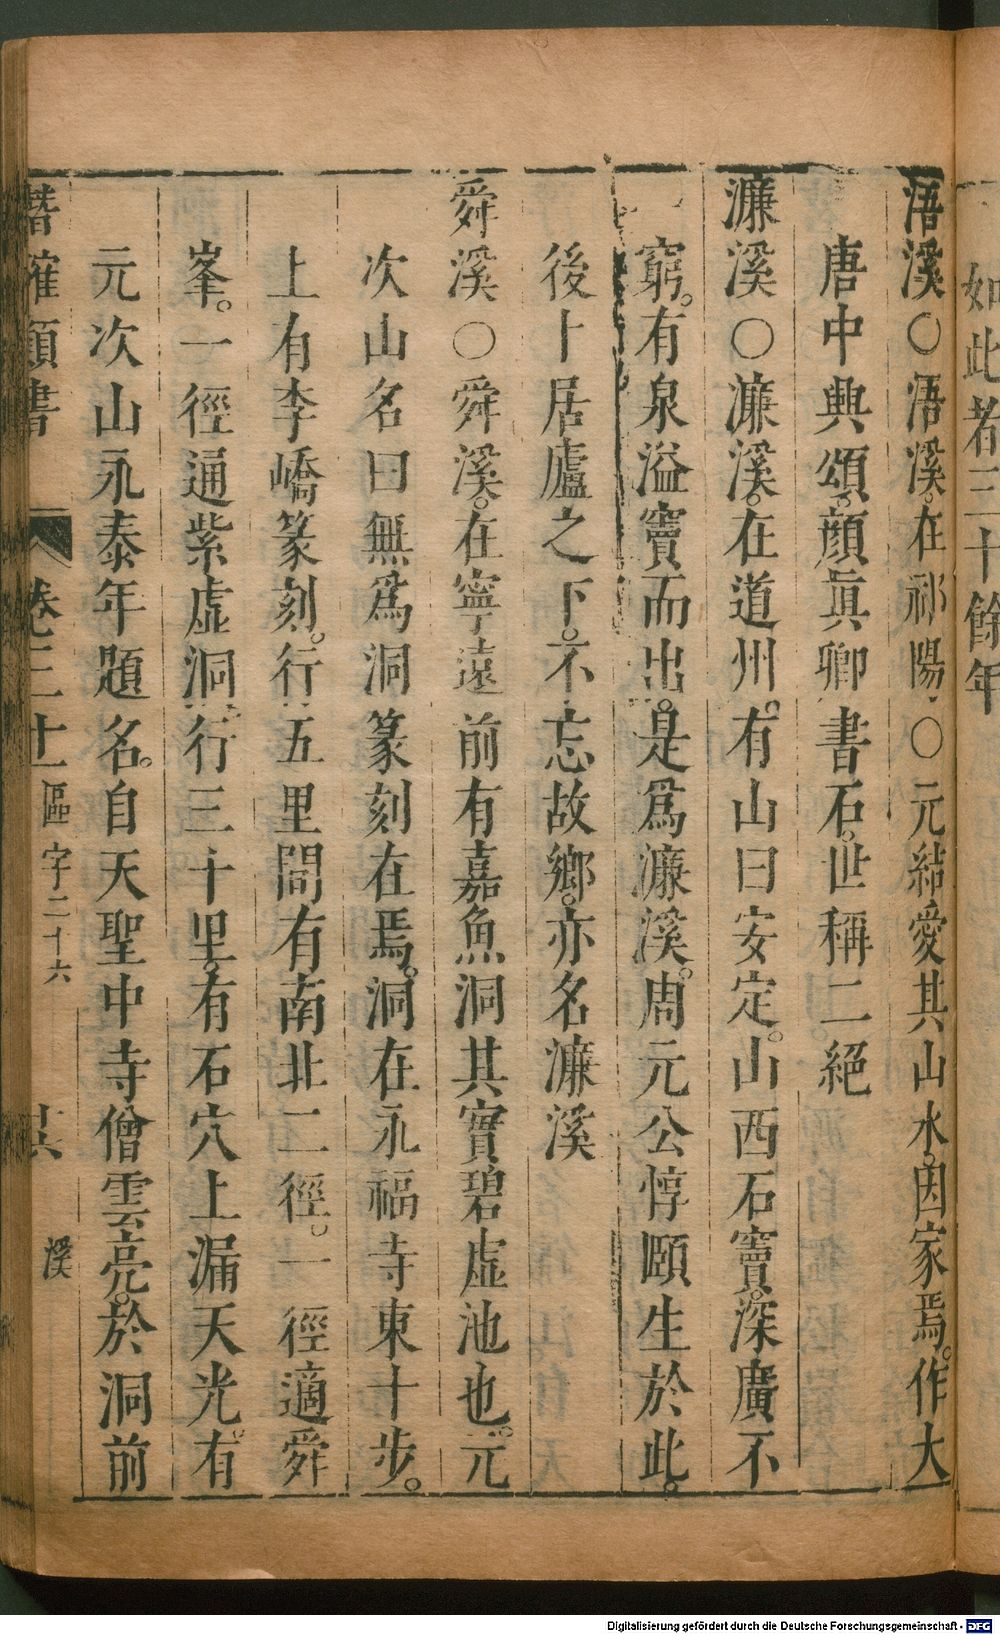 如此者三十餘年
浯溪○浯溪。在祁陽○元結愛其山水。因家焉。作大
唐中興頌。顏眞卿書石。世稱二絕
濂溪○濂溪。在道州。有山曰安定。山西石竇。深廣不
窮。有泉溢竇而出。是爲濂溪。周元公惇頤生於此。
後卜居廬之下。不忘故鄉。亦名濂溪
舜溪○舜溪。在寧遠前有嘉魚洞其實碧虛池也。元
次山名曰無爲洞篆刻在焉。洞在永福寺東十步。
上有李嶠篆刻。行五里間有南北二徑。一徑適舜
峯。一徑通紫虛洞。行三十里。有石穴上漏天光。有
元次山永泰年題名。自天聖中寺僧雲亮。於洞前
潛確類書 卷三十 區字二十六 溪
Digitalisierung gefördert durch die Deutsche Forschungsgemeinschaft - DFG